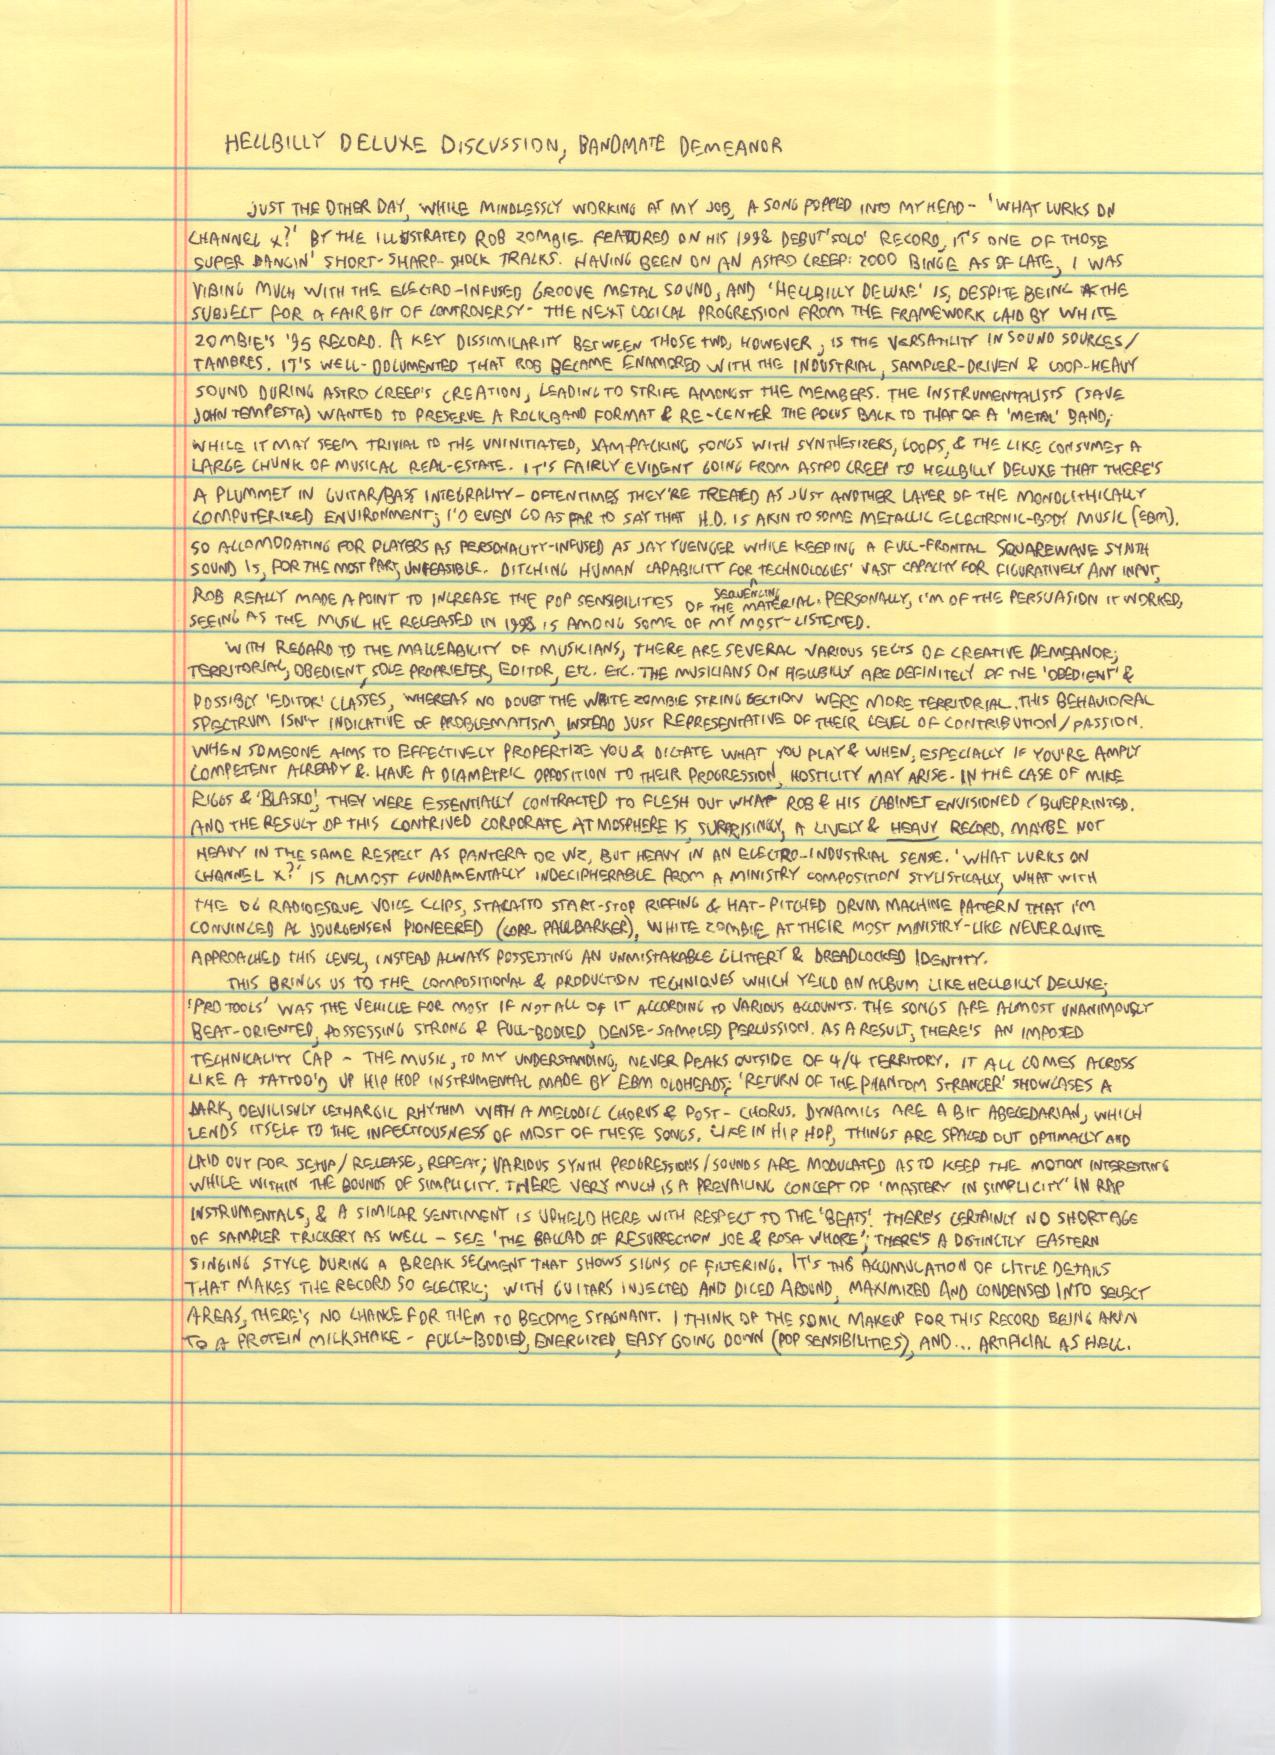 HELLBILLY DELUXE DISCUSSION, BANDMATE DEMEANOR
JUST THE OTHER DAY, WHILE MINDLESSLY WORKING AT MY JOB, A SONG POPPED INTO MY HEAD - 'WHAT LURKS ON
CHANNEL X?' BY THE ILLUSTRATED ROB ZOMBIE. FEATURED ON HIS 1998 DEBUT 'SOLO' RECORD, IT'S ONE OF THOSE
SUPER DANCIN' SHORT-SHARP-SHOCK TRACKS. HAVING BEEN ON AN ASTRO CREEP: 2000 BINGE AS OF LATE, I WAS
VIBING MUCH WITH THE ELECTRO-INFUSED GROOVE METAL SOUND, AND 'HELLBILLY DELUXE' IS, DESPITE BEING THE
SUBJECT FOR A FAIR BIT OF CONTROVERSY - THE NEXT LOGICAL PROGRESSION FROM THE FRAMEWORK LAID BY WHITE
ZOMBIE'S '95 RECORD. A KEY DISSIMILARITY BETWEEN THOSE TWO, HOWEVER, IS THE VERSATILITY IN SOUND SOURCES/
TAMBRES. IT'S WELL-DOCUMENTED THAT ROB BECAME ENAMORED WITH THE INDUSTRIAL, SAMPLER-DRIVEN & LOOP-HEAVY
SOUND DURING ASTRO CREEP'S CREATION, LEADING TO STRIFE AMONGST THE MEMBERS. THE INSTRUMENTALISTS (SAVE
JOHN TEMPESTA) WANTED TO PRESERVE A ROCKBAND FORMAT & RE-CENTER THE FOCUS BACK TO THAT OF A 'METAL' BAND;
WHILE IT MAY SEEM TRIVIAL TO THE UNINITIATED, JAM-PACKING SONGS WITH SYNTHESIZERS, LOOPS, & THE LIKE CONSUMES A
LARGE CHUNK OF MUSICAL REAL-ESTATE. IT'S FAIRLY EVIDENT GOING FROM ASTRO CREEP TO HELLBILLY DELUXE THAT THERE'S
A PLUMMET IN GUITAR/BASS INTEGRALITY - OFTENTIMES THEY'RE TREATED AS JUST ANOTHER LAYER OF THE MONOLITHICALLY
COMPUTERIZED ENVIRONMENT; I'D EVEN GO AS FAR TO SAY THAT H.D. IS AKIN TO SOME METALLIC ELECTRONIC-BODY MUSIC (EBM).
SO ACCOMODATING FOR PLAYERS AS PERSONALITY-INFUSED AS JAY YUENGER WHILE KEEPING A FULL-FRONTAL SQUAREWAVE SYNTH
SOUND IS, FOR THE MOST PART, UNFEASIBLE. DITCHING HUMAN CAPABILITY FOR TECHNOLOGIES' VAST CAPACITY FOR FIGURATIVELY ANY INPUT,
ROB REALLY MADE A POINT TO INCREASE THE POP SENSIBILITIES OF SEQUENCING THE MATERIAL. PERSONALLY, I'M OF THE PERSUASION IT WORKED,
SEEING AS THE MUSIC HE RELEASED IN 1998 IS AMONG SOME OF MY MOST-LISTENED.
WITH REGARD TO THE MALLEABILITY OF MUSICIANS, THERE ARE SEVERAL VARIOUS SECTS OF CREATIVE DEMEANOR;
TERRITORIAL, OBEDIENT, SOLE PROPRIETER, EDITOR, ETC. ETC. THE MUSICIANS ON HELLBILLY ARE DEFINITELY OF THE 'OBEDIENT' &
POSSIBLY 'EDITOR' CLASSES, WHEREAS NO DOUBT THE WHITE ZOMBIE STRING SECTION WERE MORE TERRITORIAL. THIS BEHAVIORAL
SPECTRUM ISN'T INDICATIVE OF PROBLEMATISM, INSTEAD JUST REPRESENTATIVE OF THEIR LEVEL OF CONTRIBUTION/PASSION.
WHEN SOMEONE AIMS TO EFFECTIVELY PROPERTIZE YOU & DICTATE WHAT YOU PLAY & WHEN, ESPECIALLY IF YOU'RE AMPLY
COMPETENT ALREADY & HAVE A DIAMETRIC OPPOSITION TO THEIR PROGRESSION, HOSTILITY MAY ARISE. IN THE CASE OF MIKE
RIGGS & 'BLASKO', THEY WERE ESSENTIALLY CONTRACTED TO FLESH OUT WHAT ROB & HIS CABINET ENVISIONED / BLUEPRINTED.
AND THE RESULT OF THIS CONTRIVED CORPORATE ATMOSPHERE IS, SURPRISINGLY, A LIVELY & HEAVY RECORD. MAYBE NOT
HEAVY IN THE SAME RESPECT AS PANTERA OR WZ, BUT HEAVY IN AN ELECTRO-INDUSTRIAL SENSE. 'WHAT LURKS ON
CHANNEL X?' IS ALMOST FUNDAMENTALLY INDECIPHERABLE FROM A MINISTRY COMPOSITION STYLISTICALLY, WHAT WITH
THE OG RADIOESQUE VOICE CLIPS, STACATTO START-STOP RIFFING & HAT-PITCHED DRUM MACHINE PATTERN THAT I'M
CONVINCED AL JOURGENSEN PIONEERED (CORR. PAUL BARKER), WHITE ZOMBIE AT THEIR MOST MINISTRY-LIKE NEVER QUITE
APPROACHED THIS LEVEL, INSTEAD ALWAYS POSSESSING AN UNMISTAKABLE GLITTERY & DREADLOCKED IDENTITY.
THIS BRINGS US TO THE COMPOSITIONAL & PRODUCTION TECHNIQUES WHICH YEILD AN ALBUM LIKE HELLBILLY DELUXE;
'PRO TOOLS' WAS THE VEHICLE FOR MOST IF NOT ALL OF IT ACCORDING TO VARIOUS ACCOUNTS. THE SONGS ARE ALMOST UNANIMOUSLY
BEAT-ORIENTED, POSSESSING STRONG & FULL-BODIED, DENSE-SAMPLED PERCUSSION. AS A RESULT, THERE'S AN IMPOSED
TECHNICALITY CAP - THE MUSIC, TO MY UNDERSTANDING, NEVER PEAKS OUTSIDE OF 4/4 TERRITORY. IT ALL COMES ACROSS
LIKE A TATTOO'D UP HIP HOP INSTRUMENTAL MADE BY EBM OLDHEADS; 'RETURN OF THE PHANTOM STRANGER' SHOWCASES A
DARK, DEVILISHLY LETHARGIC RHYTHM WITH A MELODIC CHORUS & POST-CHORUS. DYNAMICS ARE A BIT ABECEDARIAN, WHICH
LENDS ITSELF TO THE INFECTIOUSNESS OF MOST OF THESE SONGS. LIKE IN HIP HOP, THINGS ARE SPACED OUT OPTIMALLY AND
LAID OUT FOR SETUP/RELEASE, REPEAT; VARIOUS SYNTH PROGRESSIONS/SOUNDS ARE MODULATED AS TO KEEP THE MOTION INTERESTING
WHILE WITHIN THE BOUNDS OF SIMPLICITY. THERE VERY MUCH IS A PREVAILING CONCEPT OF 'MASTERY IN SIMPLICITY' IN RAP
INSTRUMENTALS, & A SIMILAR SENTIMENT IS UPHELD HERE WITH RESPECT TO THE 'BEATS'. THERE'S CERTAINLY NO SHORTAGE
OF SAMPLER TRICKERY AS WELL - SEE 'THE BALLAD OF RESURRECTION JOE & ROSA WHORE'; THERE'S A DISTINCTLY EASTERN
SINGING STYLE DURING A BREAK SEGMENT THAT SHOWS SIGNS OF FILTERING. IT'S THIS ACCUMULATION OF LITTLE DETAILS
THAT MAKES THE RECORD SO ELECTRIC; WITH GUITARS INJECTED AND DICED AROUND, MAXIMIZED AND CONDENSED INTO SELECT
AREAS, THERE'S NO CHANCE FOR THEM TO BECOME STAGNANT. I THINK OF THE SONIC MAKEUP FOR THIS RECORD BEING AKIN
TO A PROTEIN MILKSHAKE - FULL-BODIED, ENERGIZED, EASY GOING DOWN (POP SENSIBILITIES), AND... ARTIFICIAL AS HELL.